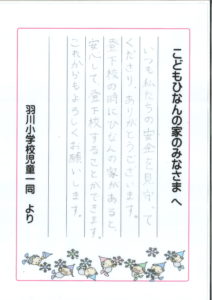 こどもひなんの家のみなさま へ
いつも私たちの安全を見守って
くださり、ありがとうございます。
登下校の時にひなんの家があると、
安心して登下校することができます。
これからもよろしくお願いします。
羽川小学校児童一同 より